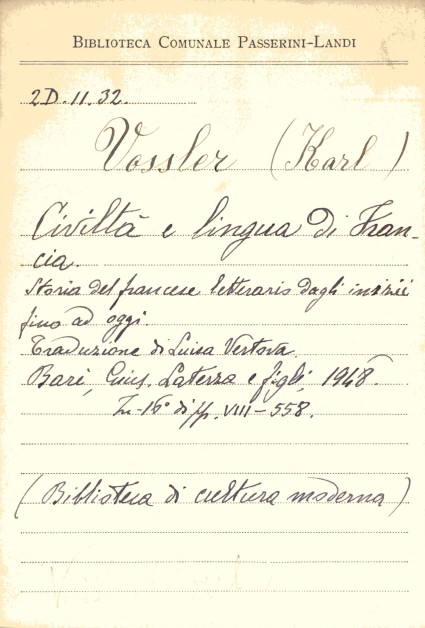 BIBLIOTECA COMUNALE PASSERINI-LANDI
2D.11.32.
Vossler (Karl)
Civiltà e lingua di Fran-
cia.
Storia del francese letterario dagli inizii
fino ad oggi.
Traduzione di Luisa Vertova.
Bari, Gius. Laterza e figli, 1948.
In-16° di pp. VIII-558.
(Biblioteca di cultura moderna)